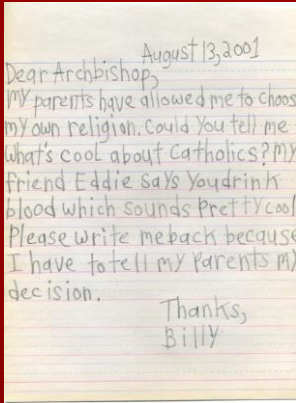 August 13, 2001
Dear Archbishop,
My parents have allowed me to choos
my own religion. Could you tell me
what's cool about Catholics? My
friend Eddie says you drink
blood which sounds pretty cool
Please write me back because
I have to tell my parents my
decision.
Thanks,
Billy